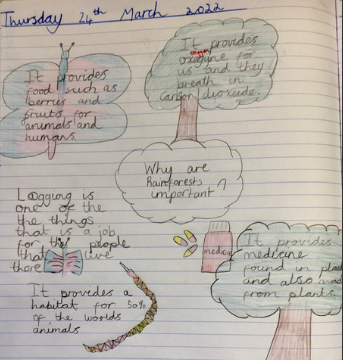 Thursday 24th March 2022
It provides
food such as
berries and
fruits for
animals and
humans.
It provides
oxagyne for
us and they
breath in
Carbon dioxuide.
Why are
Rainforests
important?
Logging is
one of the
the things
that is a job
for the people
that live
there
It provides
medecine
found in
and also
from plants.
It provides a
habitat for 50%
of the worlds
animals